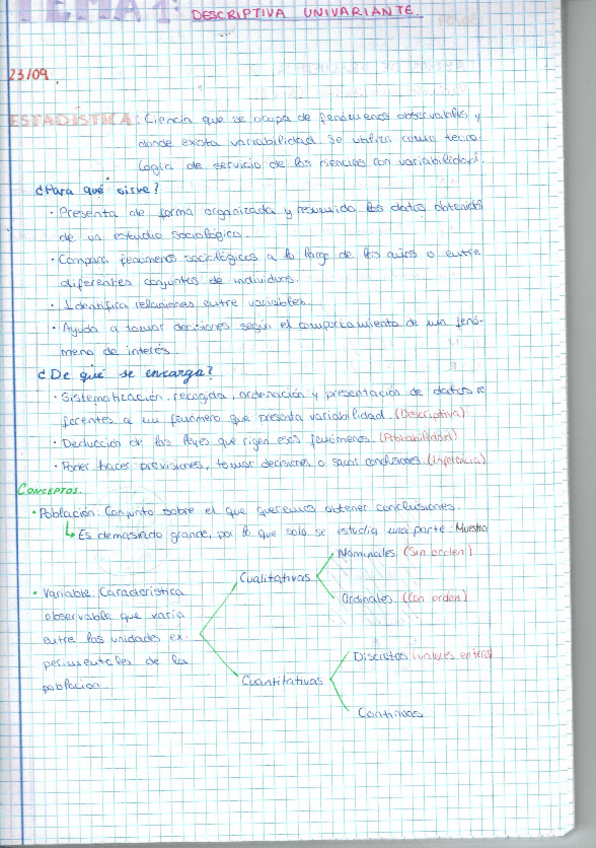 TEMA 1: DESCRIPTIVA UNIVARIANTE.
23/09.
ESTADÍSTICA: Ciencia que se ocupa de fenómenos observables y
donde exista variabilidad. Se utiliza como tecno-
logía de servicio de las ciencias con variabilidad.
¿Para qué sirve?
· Presenta de forma organizada y resumida los datos obtenidos
de un estudio sociológico.
· Compara fenómenos sociológicos a lo largo de los años o entre
diferentes conjuntos de individuos.
· Identifica relaciones entre variables.
· Ayuda a tomar decisiones según el comportamiento de un fenó-
meno de interés.
¿De qué se encarga?
· Sistematización, recogida, ordenación y presentación de datos re
ferentes a un fenómeno que presenta variabilidad. (Descriptiva)
· Deducción de las leyes que rigen esos fenómenos. (Probabilidad)
· Poder hacer previsiones, tomar decisiones o sacar conclusiones. (Inferencia)
CONCEPTOS.
· Población: Conjunto sobre el que queremos obtener conclusiones.
↳ Es demasiado grande, por lo que solo se estudia una parte: Muestra
· Variable: Característica
observable que varía
entre las unidades ex-
perimentales de la
población.
Cualitativas
Nominales (Sin orden)
Ordinales (Con orden)
Cuantitativas
Discretas (valores enteros)
Continuas